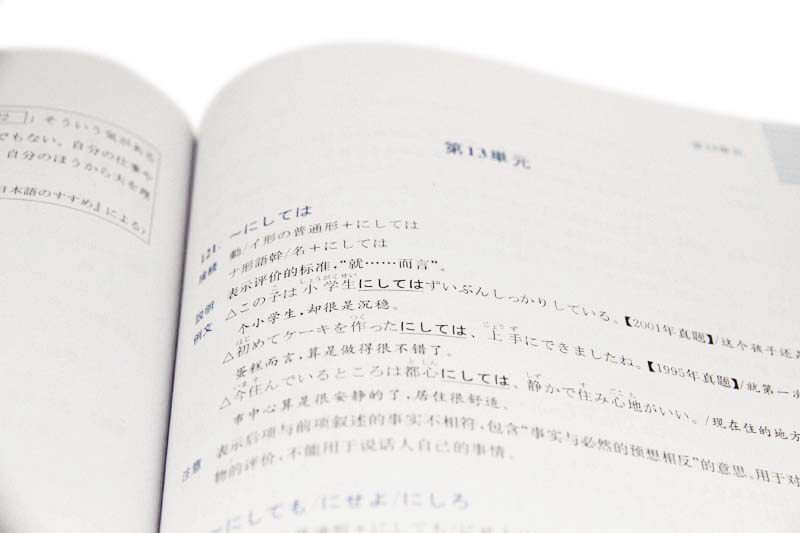 22 」そういう気がある
でもない。自分の仕事や
自分のほうから夫を理
日本語のすすめ』による)
第13単元
第13単元
121. ～にしては
接続 動/イ形の普通形+にしては
ナ形語幹/名+にしては
説明 表示评价的标准,“就……而言”。
例文 △この子は小学生にしてはずいぶんしっかりしている。【2001年真題】/这个孩子还是
个小学生,却很是沉稳。
△初めてケーキを作ったにしては、上手にできましたね。【1995年真題】/就第一次
蛋糕而言,算是做得很不错了。
△今住んでいるところは都心にしては、静かで住み心地がいい。/现在住的地方
市中心算是很安静的了,居住很舒适。
注意 表示后项与前项叙述的事实不相符,包含“事实与必然的预想相反”的意思。用于对
物的评价,不能用于说话人自己的事情。
～にしても/にせよ/にしろ
普通形+にしても/にせよ